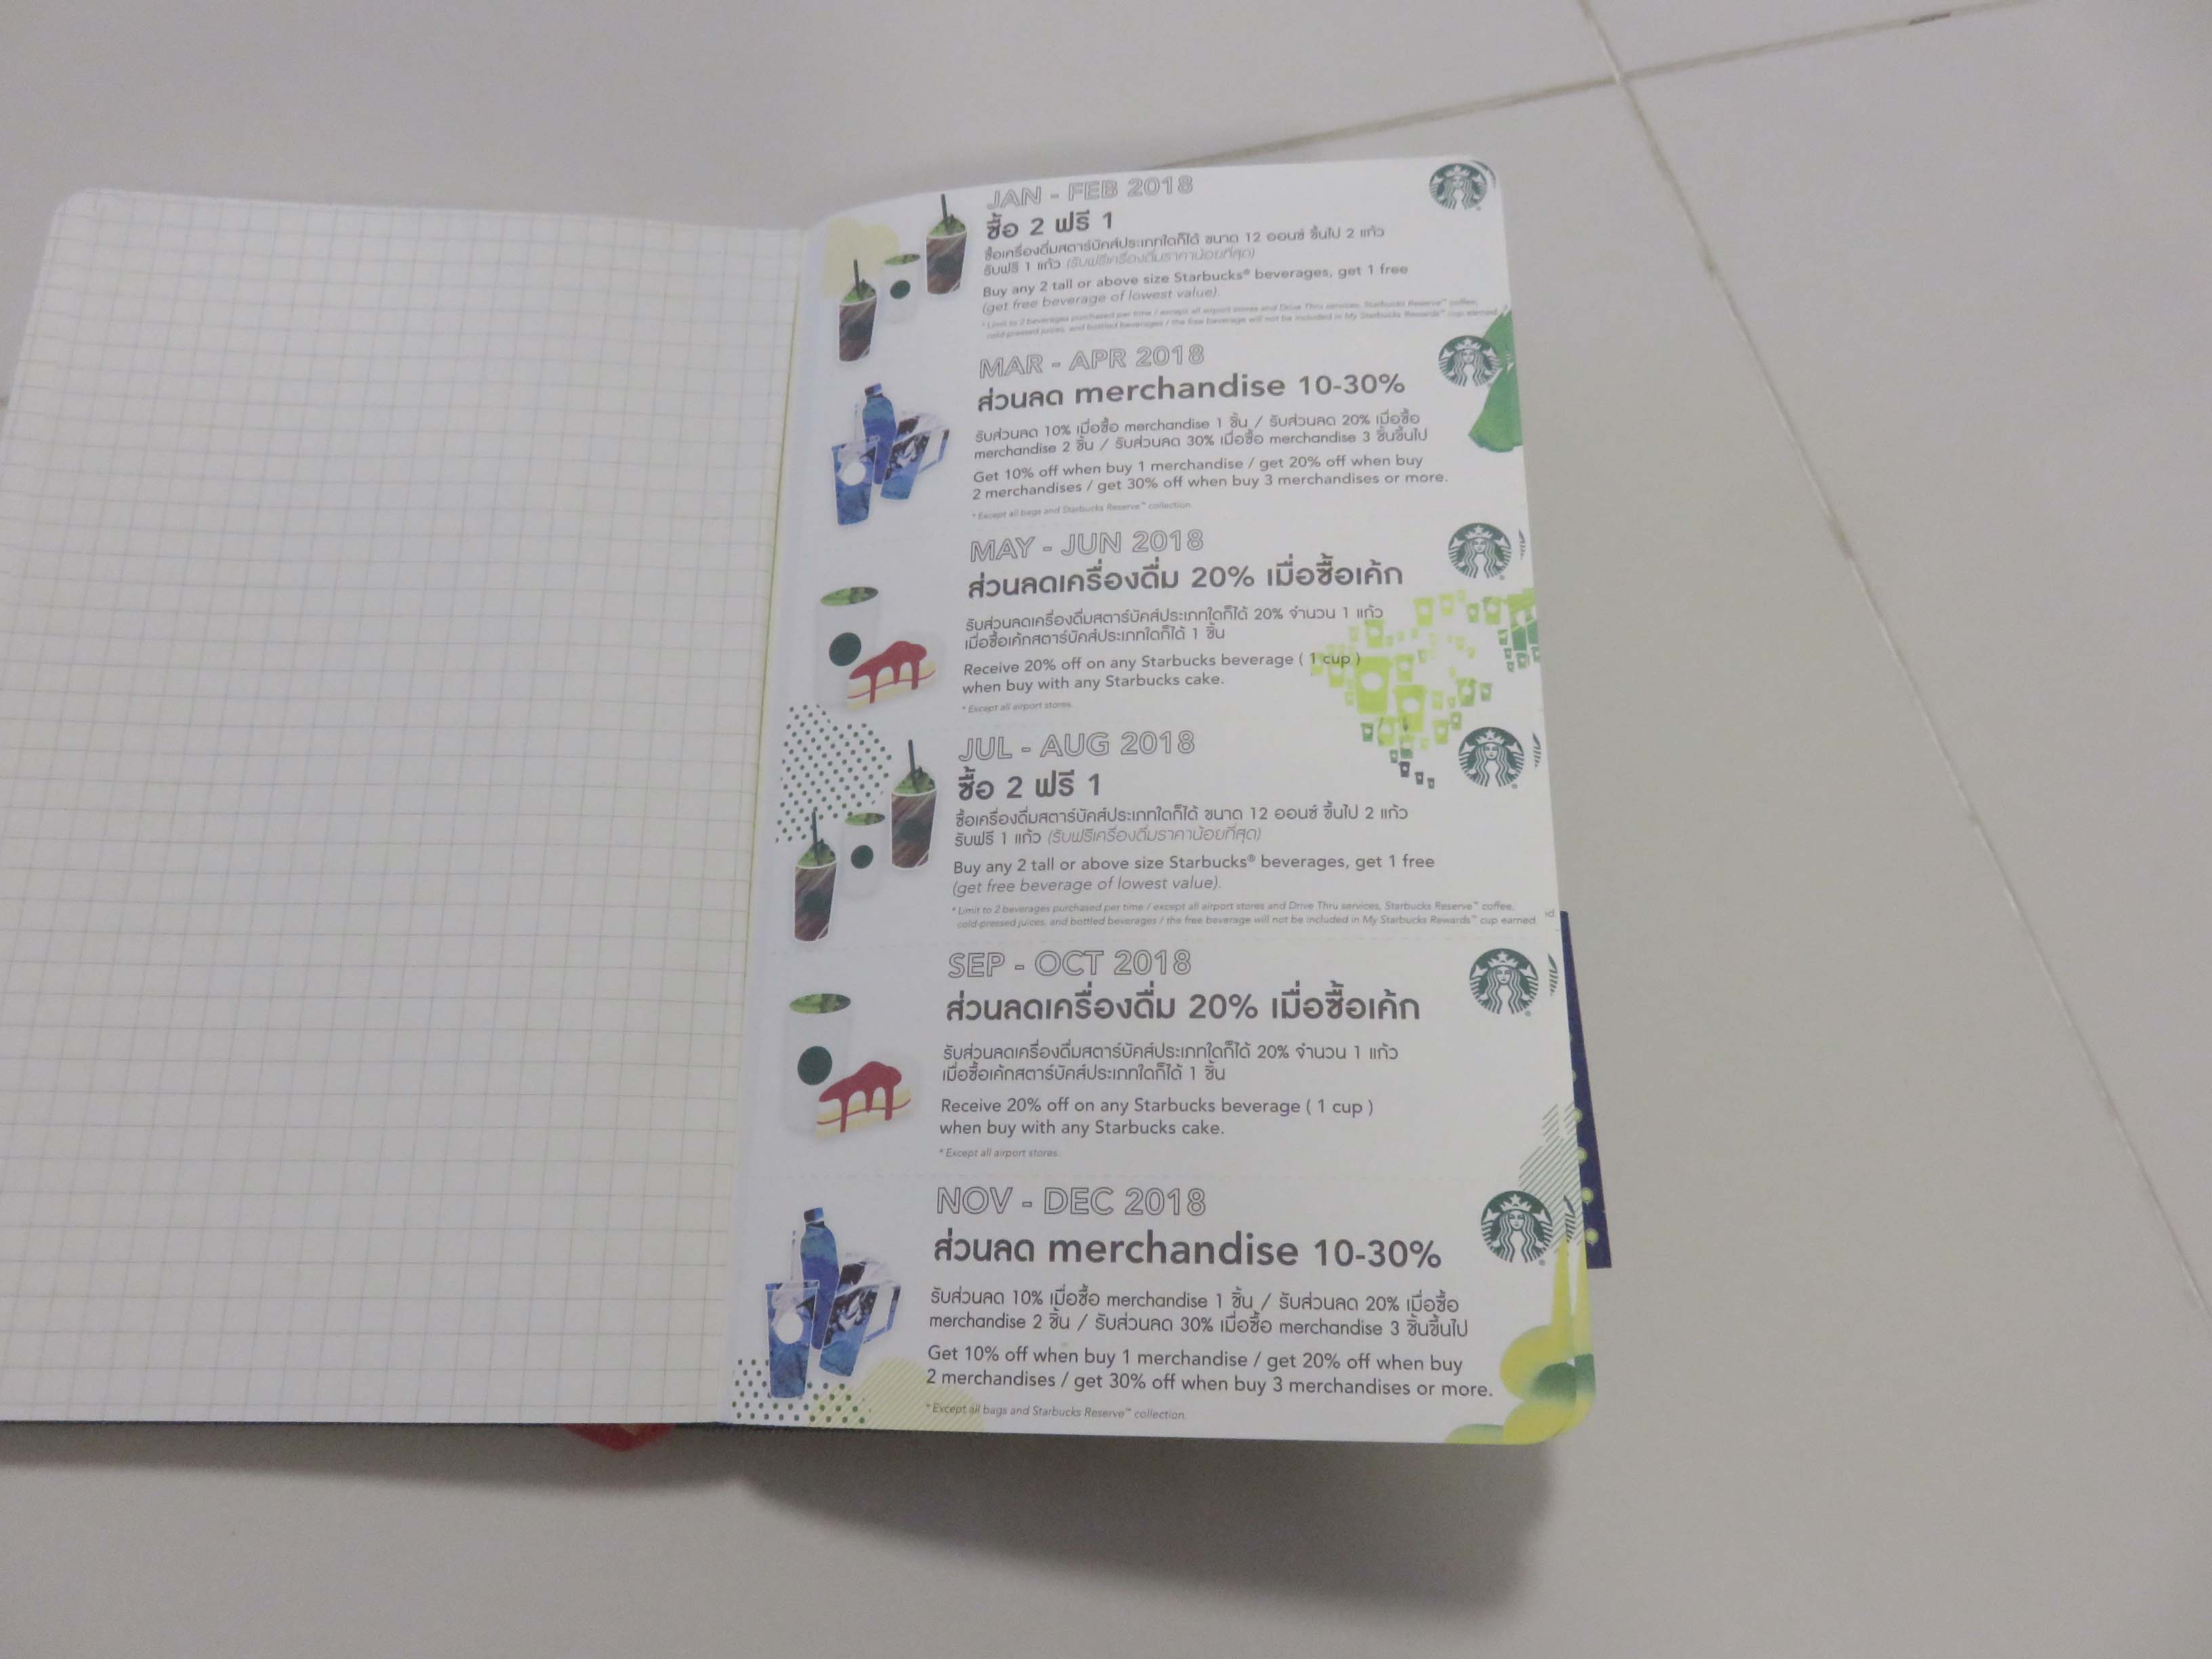 JAN - FEB 2018
ซื้อ 2 ฟรี 1
ซื้อเครื่องดื่มสตาร์บัคส์ประเภทใดก็ได้ ขนาด 12 ออนซ์ ขึ้นไป 2 แก้ว
รับฟรี 1 แก้ว (รับฟรีเครื่องดื่มราคาน้อยที่สุด)
Buy any 2 tall or above size Starbucks® beverages, get 1 free
(get free beverage of lowest value).
* Limit to 2 beverages purchased per time / except all airport stores and Drive Thru services, Starbucks Reserve™ coffee,
cold-pressed juices, and bottled beverages / the free beverage will not be included in My Starbucks Rewards™ cup earned.
MAR - APR 2018
ส่วนลด merchandise 10-30%
รับส่วนลด 10% เมื่อซื้อ merchandise 1 ชิ้น / รับส่วนลด 20% เมื่อซื้อ
merchandise 2 ชิ้น / รับส่วนลด 30% เมื่อซื้อ merchandise 3 ชิ้นขึ้นไป
Get 10% off when buy 1 merchandise / get 20% off when buy
2 merchandises / get 30% off when buy 3 merchandises or more.
* Except all bags and Starbucks Reserve™ collection.
MAY - JUN 2018
ส่วนลดเครื่องดื่ม 20% เมื่อซื้อเค้ก
รับส่วนลดเครื่องดื่มสตาร์บัคส์ประเภทใดก็ได้ 20% จำนวน 1 แก้ว
เมื่อซื้อเค้กสตาร์บัคส์ประเภทใดก็ได้ 1 ชิ้น
Receive 20% off on any Starbucks beverage ( 1 cup )
when buy with any Starbucks cake.
* Except all airport stores.
JUL - AUG 2018
ซื้อ 2 ฟรี 1
ซื้อเครื่องดื่มสตาร์บัคส์ประเภทใดก็ได้ ขนาด 12 ออนซ์ ขึ้นไป 2 แก้ว
รับฟรี 1 แก้ว (รับฟรีเครื่องดื่มราคาน้อยที่สุด)
Buy any 2 tall or above size Starbucks® beverages, get 1 free
(get free beverage of lowest value).
* Limit to 2 beverages purchased per time / except all airport stores and Drive Thru services, Starbucks Reserve™ coffee,
cold-pressed juices, and bottled beverages / the free beverage will not be included in My Starbucks Rewards™ cup earned.
SEP - OCT 2018
ส่วนลดเครื่องดื่ม 20% เมื่อซื้อเค้ก
รับส่วนลดเครื่องดื่มสตาร์บัคส์ประเภทใดก็ได้ 20% จำนวน 1 แก้ว
เมื่อซื้อเค้กสตาร์บัคส์ประเภทใดก็ได้ 1 ชิ้น
Receive 20% off on any Starbucks beverage ( 1 cup )
when buy with any Starbucks cake.
* Except all airport stores.
NOV - DEC 2018
ส่วนลด merchandise 10-30%
รับส่วนลด 10% เมื่อซื้อ merchandise 1 ชิ้น / รับส่วนลด 20% เมื่อซื้อ
merchandise 2 ชิ้น / รับส่วนลด 30% เมื่อซื้อ merchandise 3 ชิ้นขึ้นไป
Get 10% off when buy 1 merchandise / get 20% off when buy
2 merchandises / get 30% off when buy 3 merchandises or more.
* Except all bags and Starbucks Reserve™ collection.